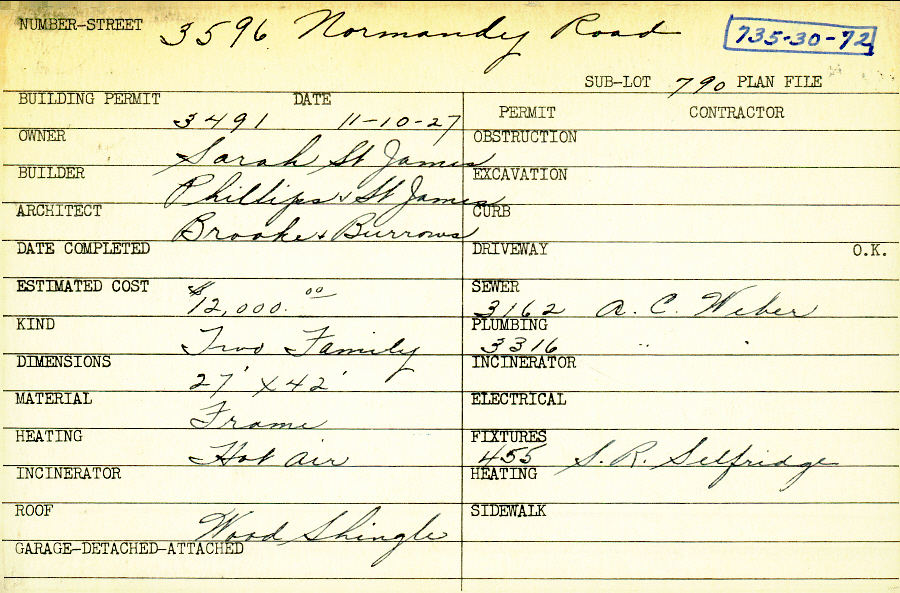 NUMBER-STREET 3596 Normandy Road 735-30-72
SUB-LOT 790 PLAN FILE
BUILDING PERMIT 3491 DATE 11-10-27 PERMIT CONTRACTOR
OWNER Sarah St James OBSTRUCTION
BUILDER Phillips & St James EXCAVATION
ARCHITECT Brooke & Burrows CURB
DATE COMPLETED DRIVEWAY O.K.
ESTIMATED COST $12,000.00 SEWER 3162 A. C. Weber
KIND Two Family PLUMBING 3316 " "
DIMENSIONS 27' X 42' INCINERATOR
MATERIAL Frame ELECTRICAL
HEATING Hot air FIXTURES 455 S. R. Selfridge
INCINERATOR HEATING
ROOF Wood Shingle SIDEWALK
GARAGE-DETACHED-ATTACHED